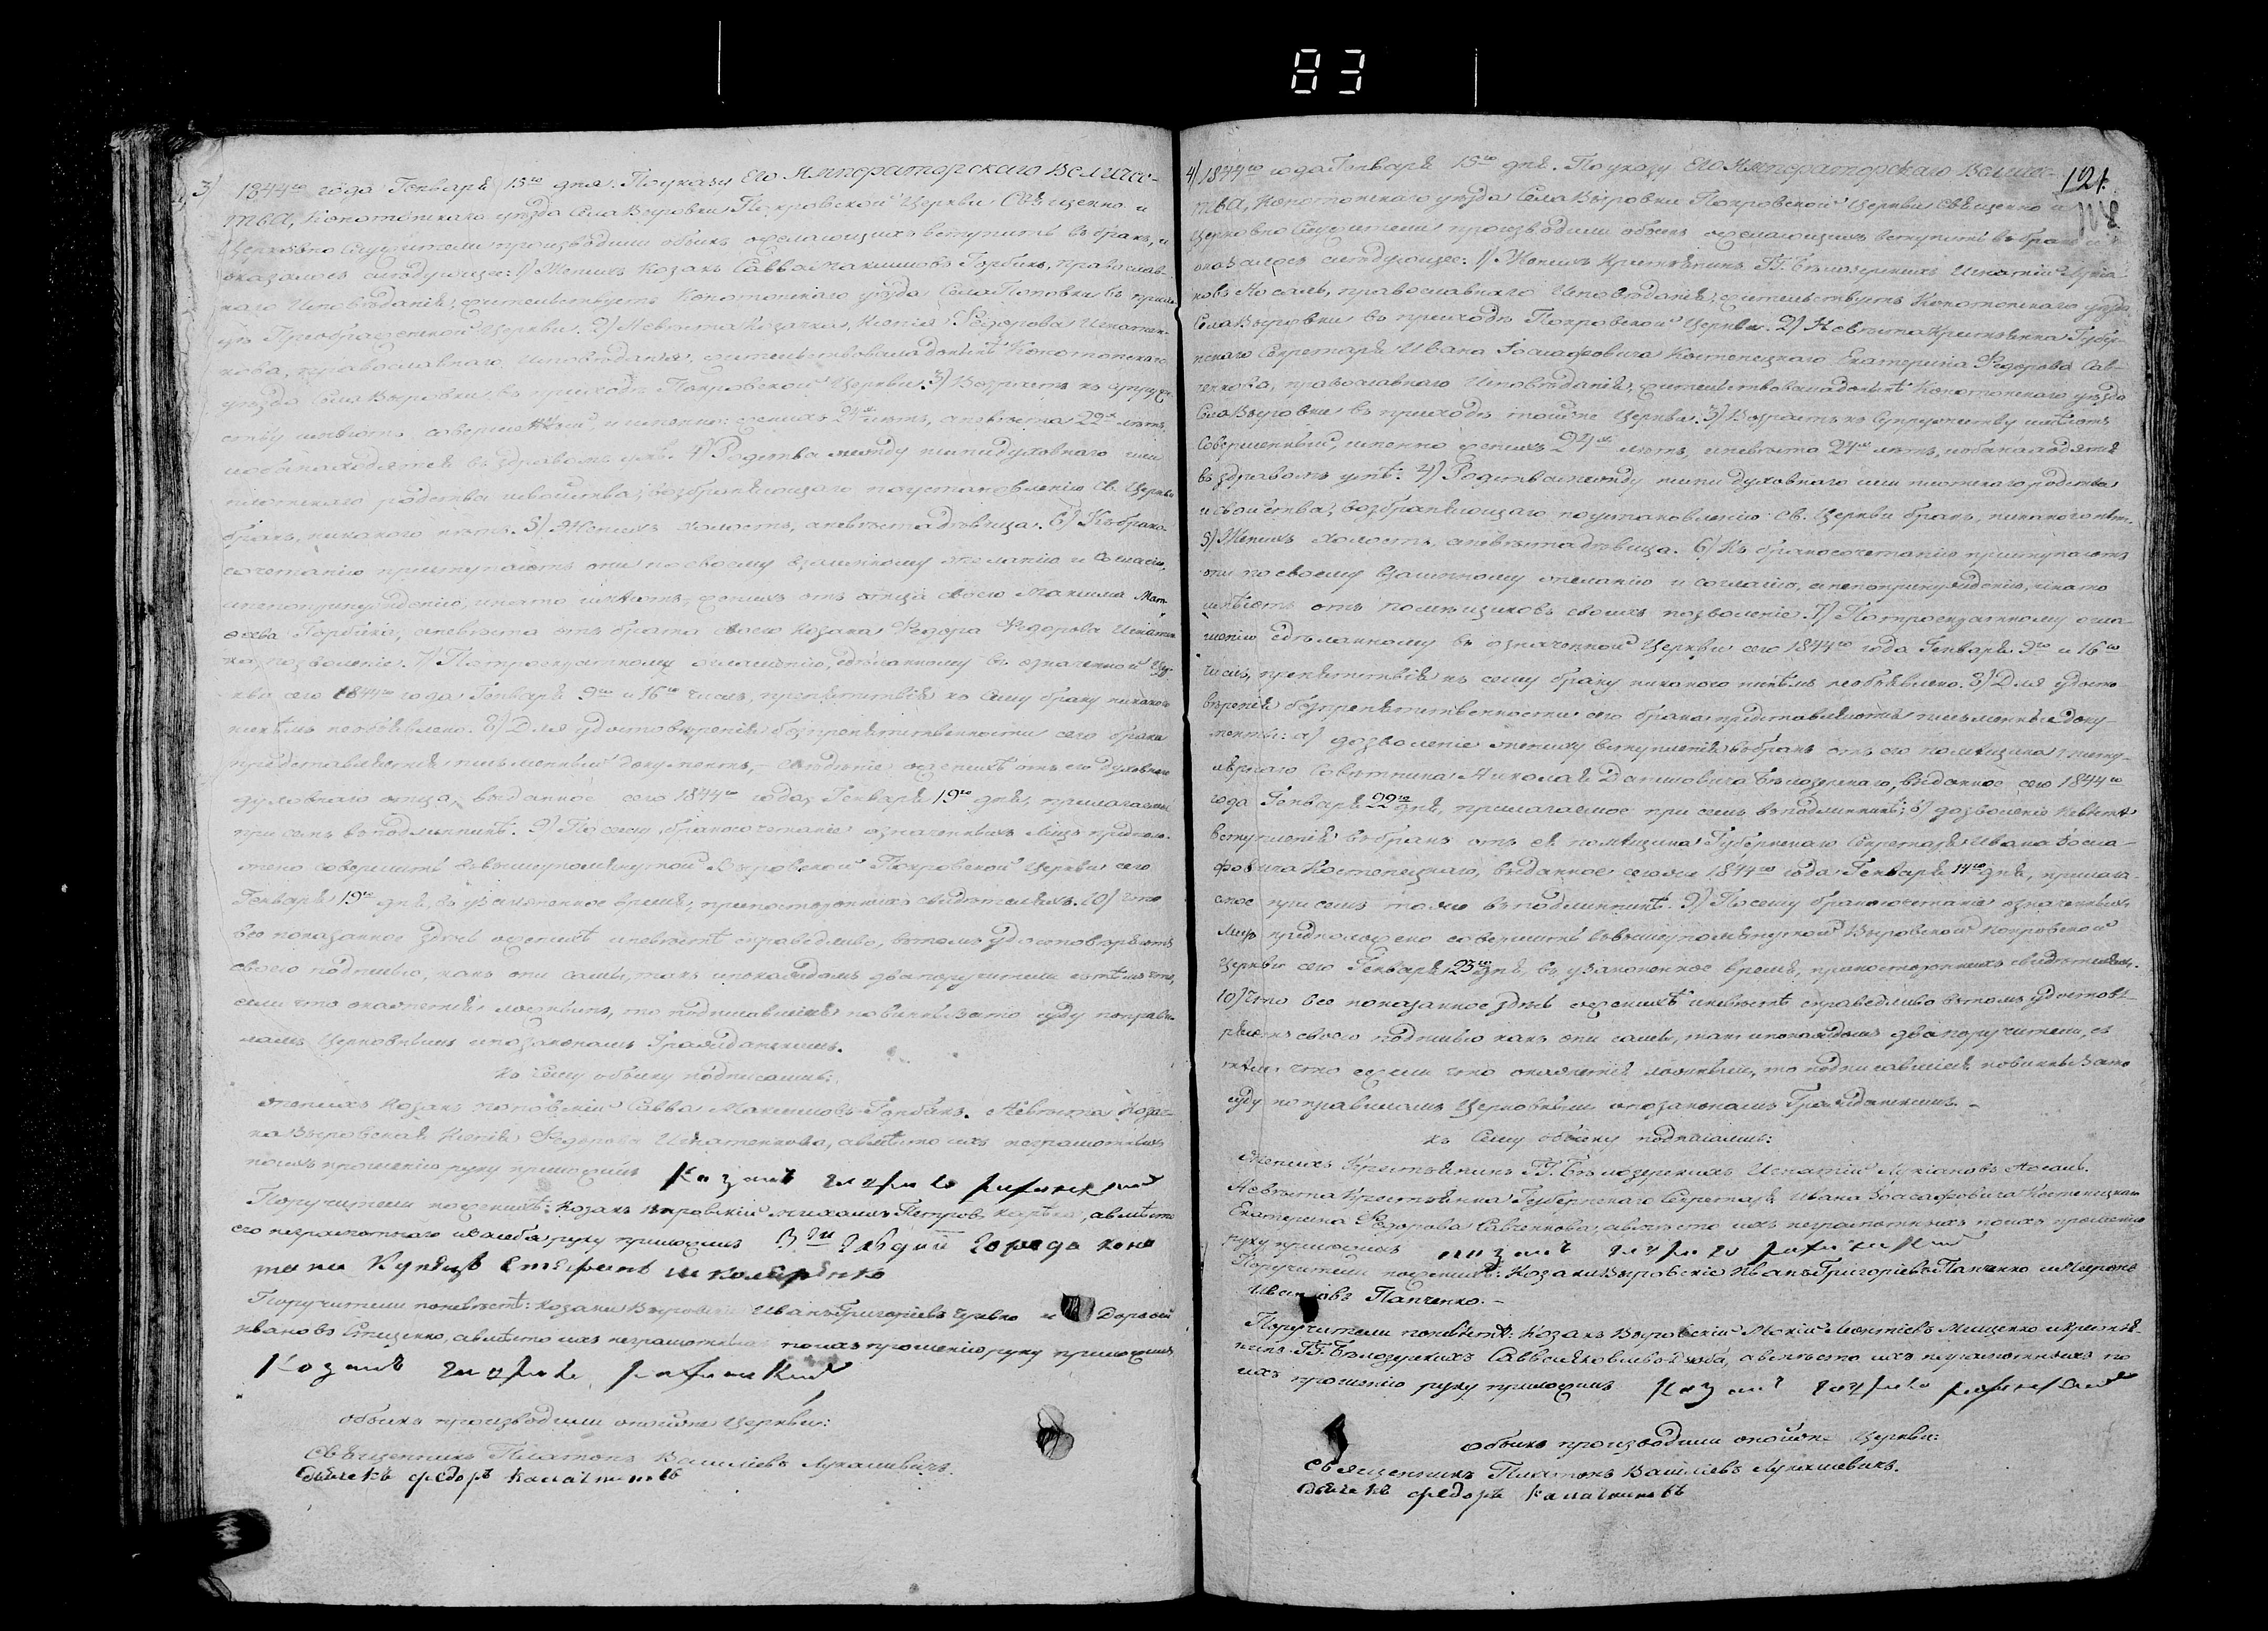 83
121
3) 1844го года Генваря 15го дня. По указу Его Императорскаго Величес-
тва, Конотопскаго уѣзда Села Выровки Покровской Церкви Священно и
Церковно Служители производили обыскъ о желающихъ вступить въ бракъ, и
оказалось слѣдующее: 1) Женихъ Козакъ Савва Максимовъ Горбикъ, православ-
наго Исповѣданія, жительствуетъ Конотопскаго уѣзда Села Поповки въ прихо-
дѣ Преображенской Церкви. 2) Невѣста Козачка, Ксенія Федорова Игнатен-
кова, православнаго Исповѣданія, жительствовала донынѣ Конотопскаго
уѣзда Села Выровки въ приходѣ Покровской Церкви. 3) Возрастъ къ супруже-
ству имѣютъ совершенный, и именно: женихъ 24 лѣтъ, а невѣста 22х лѣтъ,
и оба находятся въ здравомъ умѣ. 4) Родства между ними духовнаго или
плотскаго родства и свойства, возбраняющаго по установленію Св. Церкви
бракъ, никакого нѣтъ. 5) Женихъ холостъ, а невѣста дѣвица. 6) Къ брако-
сочетанію приступаютъ они по своему взаимному желанію и согласію,
а не по принужденію, и на то имѣютъ, женихъ отъ отца своего Максима Мат-
ѳеева Горбика, а невѣста отъ брата своего козака Федора Федорова Игнатен-
ка позволеніе. 7) По троекратному оглашенію, сдѣланному въ означенной Цер-
кви сего 1844го года Генваря 9го и 16го чиселъ, препятствія къ сему браку никакого
никѣмъ необъявлено. 8) Для удостовѣренія безпрепятственности сего брака
представляется письменный документъ, свѣдѣніе о женихѣ отъ его духовнаго
духовнаго отца, выданное сего 1844го года Генваря 19го дня, прилагаемое
при семъ въ подлинникѣ. 9) По сему бракосочетаніе означенныхъ лицъ предполо-
жено совершить въ вышеупомянутой Выровской Покровской Церкви сего
Генваря 19го дня, въ узаконенное время, при постороннихъ свидѣтеляхъ. 10) Что
все показанное здѣсь о женихѣ и невѣстѣ справедливо, въ томъ удостовѣряютъ
своею подписью, какъ они сами, такъ и по каждомъ два поручители, съ тѣмъ что,
если что окажется ложнымъ, то подписавшіеся повинны за то суду по прави-
ламъ Церковнымъ и по законамъ Гражданскимъ.
Къ сему обыску подписались:
Женихъ Козакъ Поповскій Савва Максимовъ Горбикъ. Невѣста Козач-
ка Выровская Ксенія Федорова Игнатенкова, а вмѣсто ихъ неграмотныхъ
по ихъ прошенію руку приложилъ Козакъ
Поручители по женихѣ: Козакъ Выровскій Михаилъ Петровъ, а вмѣсто
его неграмотнаго и за себя руку приложилъ 3й гилдии города Коно
топа Купецъ Стефанъ Школяренко
Поручители по невѣстѣ: Козаки Выровскіе Иванъ Григорьевъ и Дорофей
Ивановъ Стиценко, а вмѣсто ихъ неграмотныхъ по ихъ прошенію руку приложилъ
Козакъ
Обыскъ производили оной же Церкви:
Священникъ Платонъ Василіевъ Лукашевичъ.
Дьячекъ Федоръ Калачниковъ
4) 1844го года Генваря 15го дня. По указу Его Императорскаго Величес-
тва, Конотопскаго уѣзда Села Выровки Покровской Церкви Священно и
Церковно Служители производили обыскъ о желающихъ вступить въ бракъ и
оказалось слѣдующее: 1) Женихъ Крестьянинъ ГГ. Бѣлозерскихъ Игнатій Лукіа-
новъ Носаль, православнаго Исповѣданія, жительствуетъ Конотопскаго уѣзда
Села Выровки въ приходѣ Покровской Церкви. 2) Невѣста Крестьянка Губер-
нскаго Секретаря Ивана Іоасафовича Костенецкаго Екатерина Федорова Сав-
ченкова, православнаго Исповѣданія, жительствовала донынѣ Конотопскаго уѣзда
Села Выровки въ приходѣ той же Церкви. 3) Возрастъ къ Супружеству имѣютъ
Совершенный, именно женихъ 24 лѣтъ, а невѣста 21 лѣтъ, и оба находятся
въ здравомъ умѣ. 4) Родства между ними духовнаго или плотскаго родства
и свойства, возбраняющаго по установленію Св. Церкви бракъ, никакого нѣтъ.
5) Женихъ холостъ, а невѣста дѣвица. 6) Къ бракосочетанію приступаютъ
они по своему взаимному желанію и согласію, а не по принужденію, и на то
имѣютъ отъ помѣщиковъ своихъ позволеніе. 7) По троекратному огла-
шенію сдѣланному въ означенной Церкви сего 1844го года Генваря 9го и 16го
чиселъ, препятствія къ сему браку никакого никѣмъ необъявлено. 8) Для удосто-
вѣренія безпрепятственности сего брака представляются письменные доку-
менты: а) дозволеніе жениху вступленія въ бракъ отъ его помѣщика титу-
лярнаго Совѣтника Николая Даниловича Бѣлозерскаго, выданное сего 1844го
года Генваря 22го дня, прилагаемое при семъ въ подлинникѣ; б) дозволеніе невѣстѣ
вступленія въ бракъ отъ ея помѣщика Губернскаго Секретаря Ивана Іоаса-
фовича Костенецкаго, выданное сего же 1844го года Генваря 14го дня, прилага-
емое при семъ тоже въ подлинникѣ. 9) По сему бракосочетаніе означенныхъ
лицъ предположено совершить въ вышеупомянутой Выровской Покровской
Церкви сего Генваря 23го дня, въ узаконенное время, при постороннихъ свидѣтеляхъ.
10) Что все показанное здѣсь о женихѣ и невѣстѣ справедливо въ томъ удостовѣ-
ряютъ своею подписью какъ они сами, такъ и по каждомъ два поручители, съ
тѣмъ что ежели что окажется ложнымъ, то подписавшіеся повинны за то
суду по правиламъ Церковнымъ и по законамъ Гражданскимъ.
Къ сему обыску подписались:
Женихъ Крестьянинъ ГГ. Бѣлозерскихъ Игнатій Лукіановъ Носаль.
Невѣста Крестьянка Губернскаго Секретаря Ивана Іоасафовича Костенецкаго
Екатерина Федорова Савченкова, а вмѣсто ихъ неграмотныхъ по ихъ прошенію
руку приложилъ Козакъ
Поручители по женихѣ: Козаки Выровскіе Иванъ Григоріевъ Панченко и Миронъ
Ивановъ Панченко.
Поручители по невѣстѣ: Козакъ Выровскій Мокій Леонтіевъ Мищенко и крестья-
нинъ ГГ. Бѣлозерскихъ Савва Яковлевъ Дзюба, а вмѣсто ихъ неграмотныхъ по
ихъ прошенію руку приложилъ Козакъ
Обыскъ производили оной же Церкви:
Священникъ Платонъ Василіевъ Лукашевичъ.
Дьячекъ Федоръ Калачниковъ